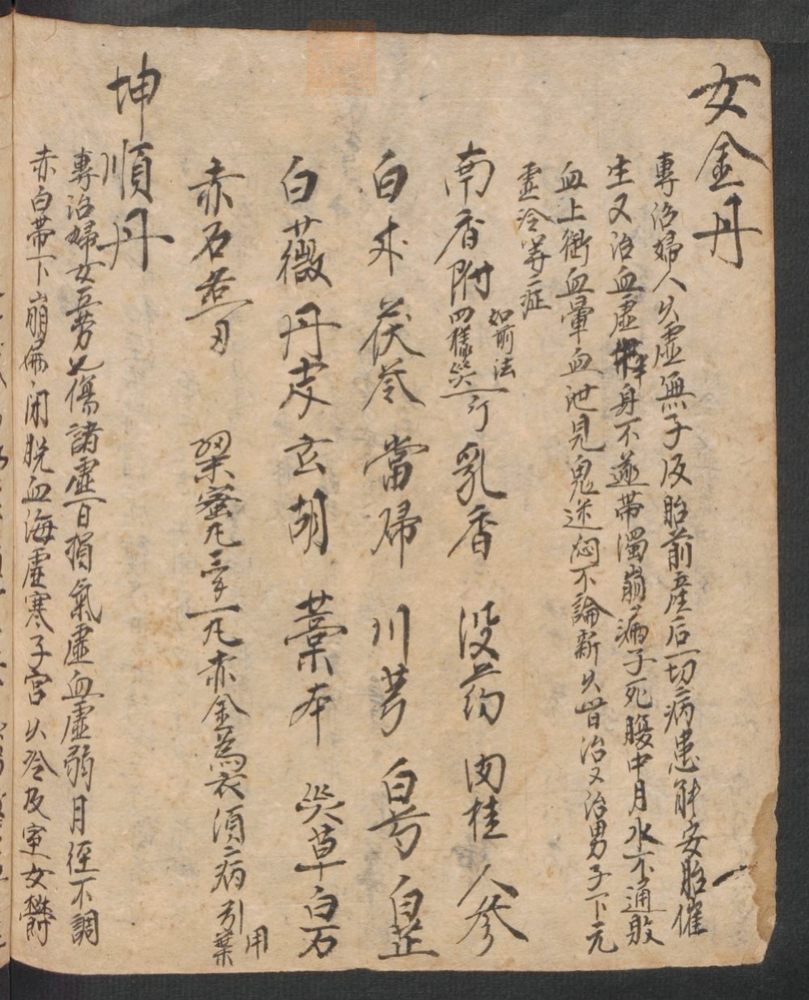 女金丹
專治婦人久虛無子及胎前產后一切病患能安胎催
生又治血虛身不遂帶濁崩漏子死腹中月水不通敗
血上衝血暈血泄見鬼迷悶不論新久皆治又治男子下元
虛冷等症
南香附四樣炒一斤如前法 乳香 沒药 肉桂 人參
白朮 茯苓 當歸 川芎 白芍 白芷
白薇 丹皮 玄胡 藁本 炙草 白石
赤石 煉蜜丸 一丸赤金為衣須病用引葉
坤順丹
專治婦女五劳七傷諸虛百損氣虛血虛弱月徑不調
赤白帶下崩漏閉脫血海虛寒子宮久冷及室女鬱